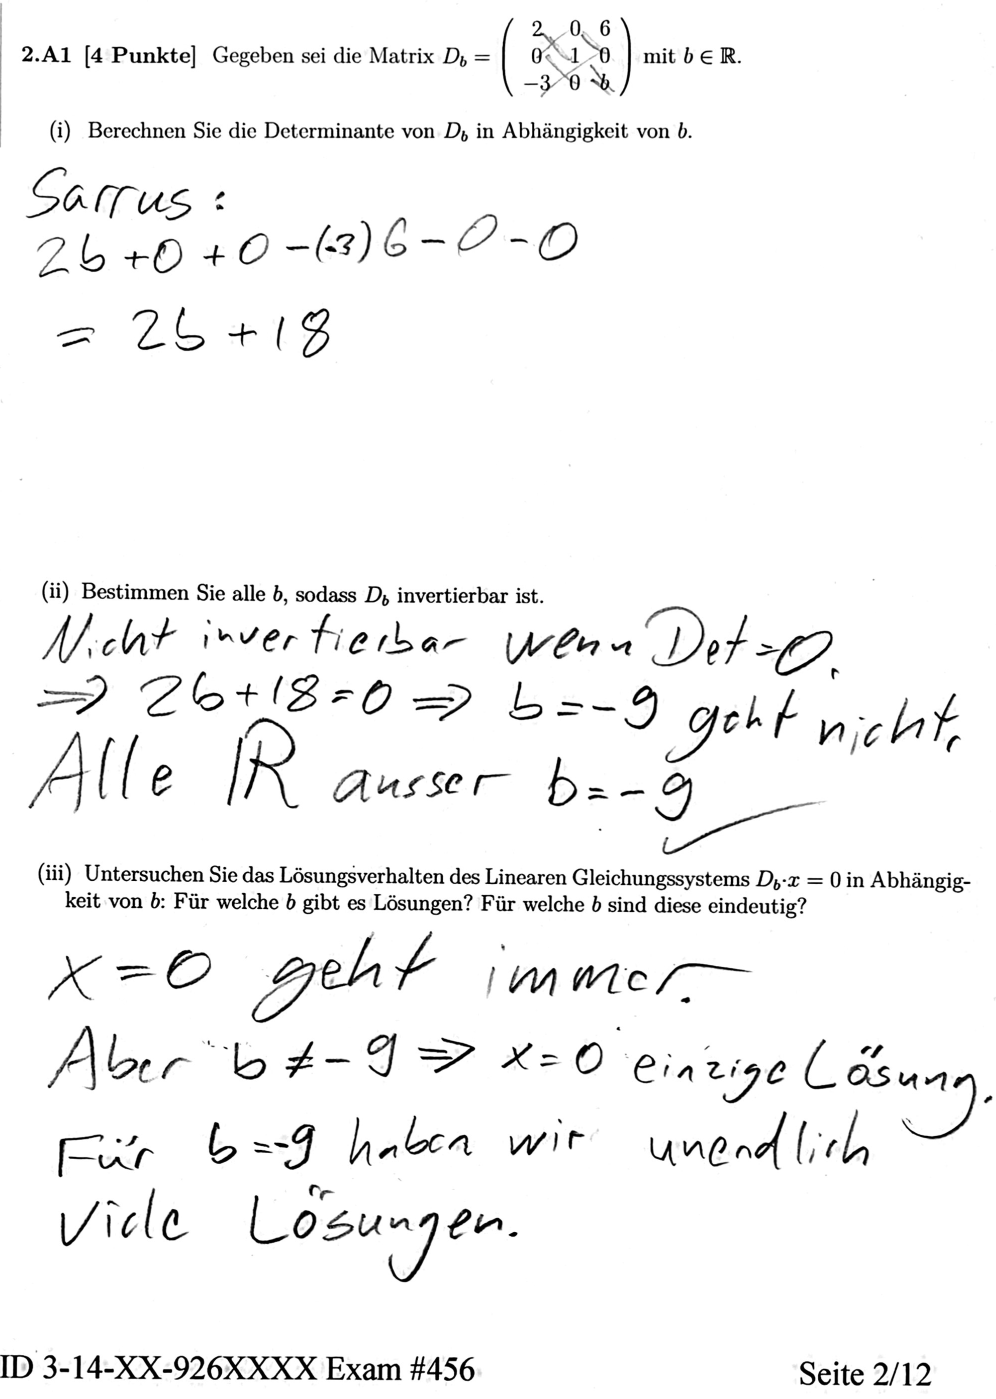 2.A1 [4 Punkte] Gegeben sei die Matrix D_b = ( 2 0 6 ; 0 1 0 ; −3 0 b ) mit b ∈ ℝ.
(i) Berechnen Sie die Determinante von D_b in Abhängigkeit von b.
Sarrus:
2b + 0 + 0 − (-3) 6 − 0 − 0
= 2b + 18
(ii) Bestimmen Sie alle b, sodass D_b invertierbar ist.
Nicht invertierbar wenn Det = 0.
⇒ 2b + 18 = 0 ⇒ b = −9 geht nicht.
Alle ℝ ausser b = −9 ✓
(iii) Untersuchen Sie das Lösungsverhalten des Linearen Gleichungssystems D_b·x = 0 in Abhängig-
keit von b: Für welche b gibt es Lösungen? Für welche b sind diese eindeutig?
x = 0 geht immer.
Aber b ≠ −9 ⇒ x = 0 einzige Lösung.
Für b = -9 haben wir unendlich
viele Lösungen.
ID 3-14-XX-926XXXX Exam #456
Seite 2/12